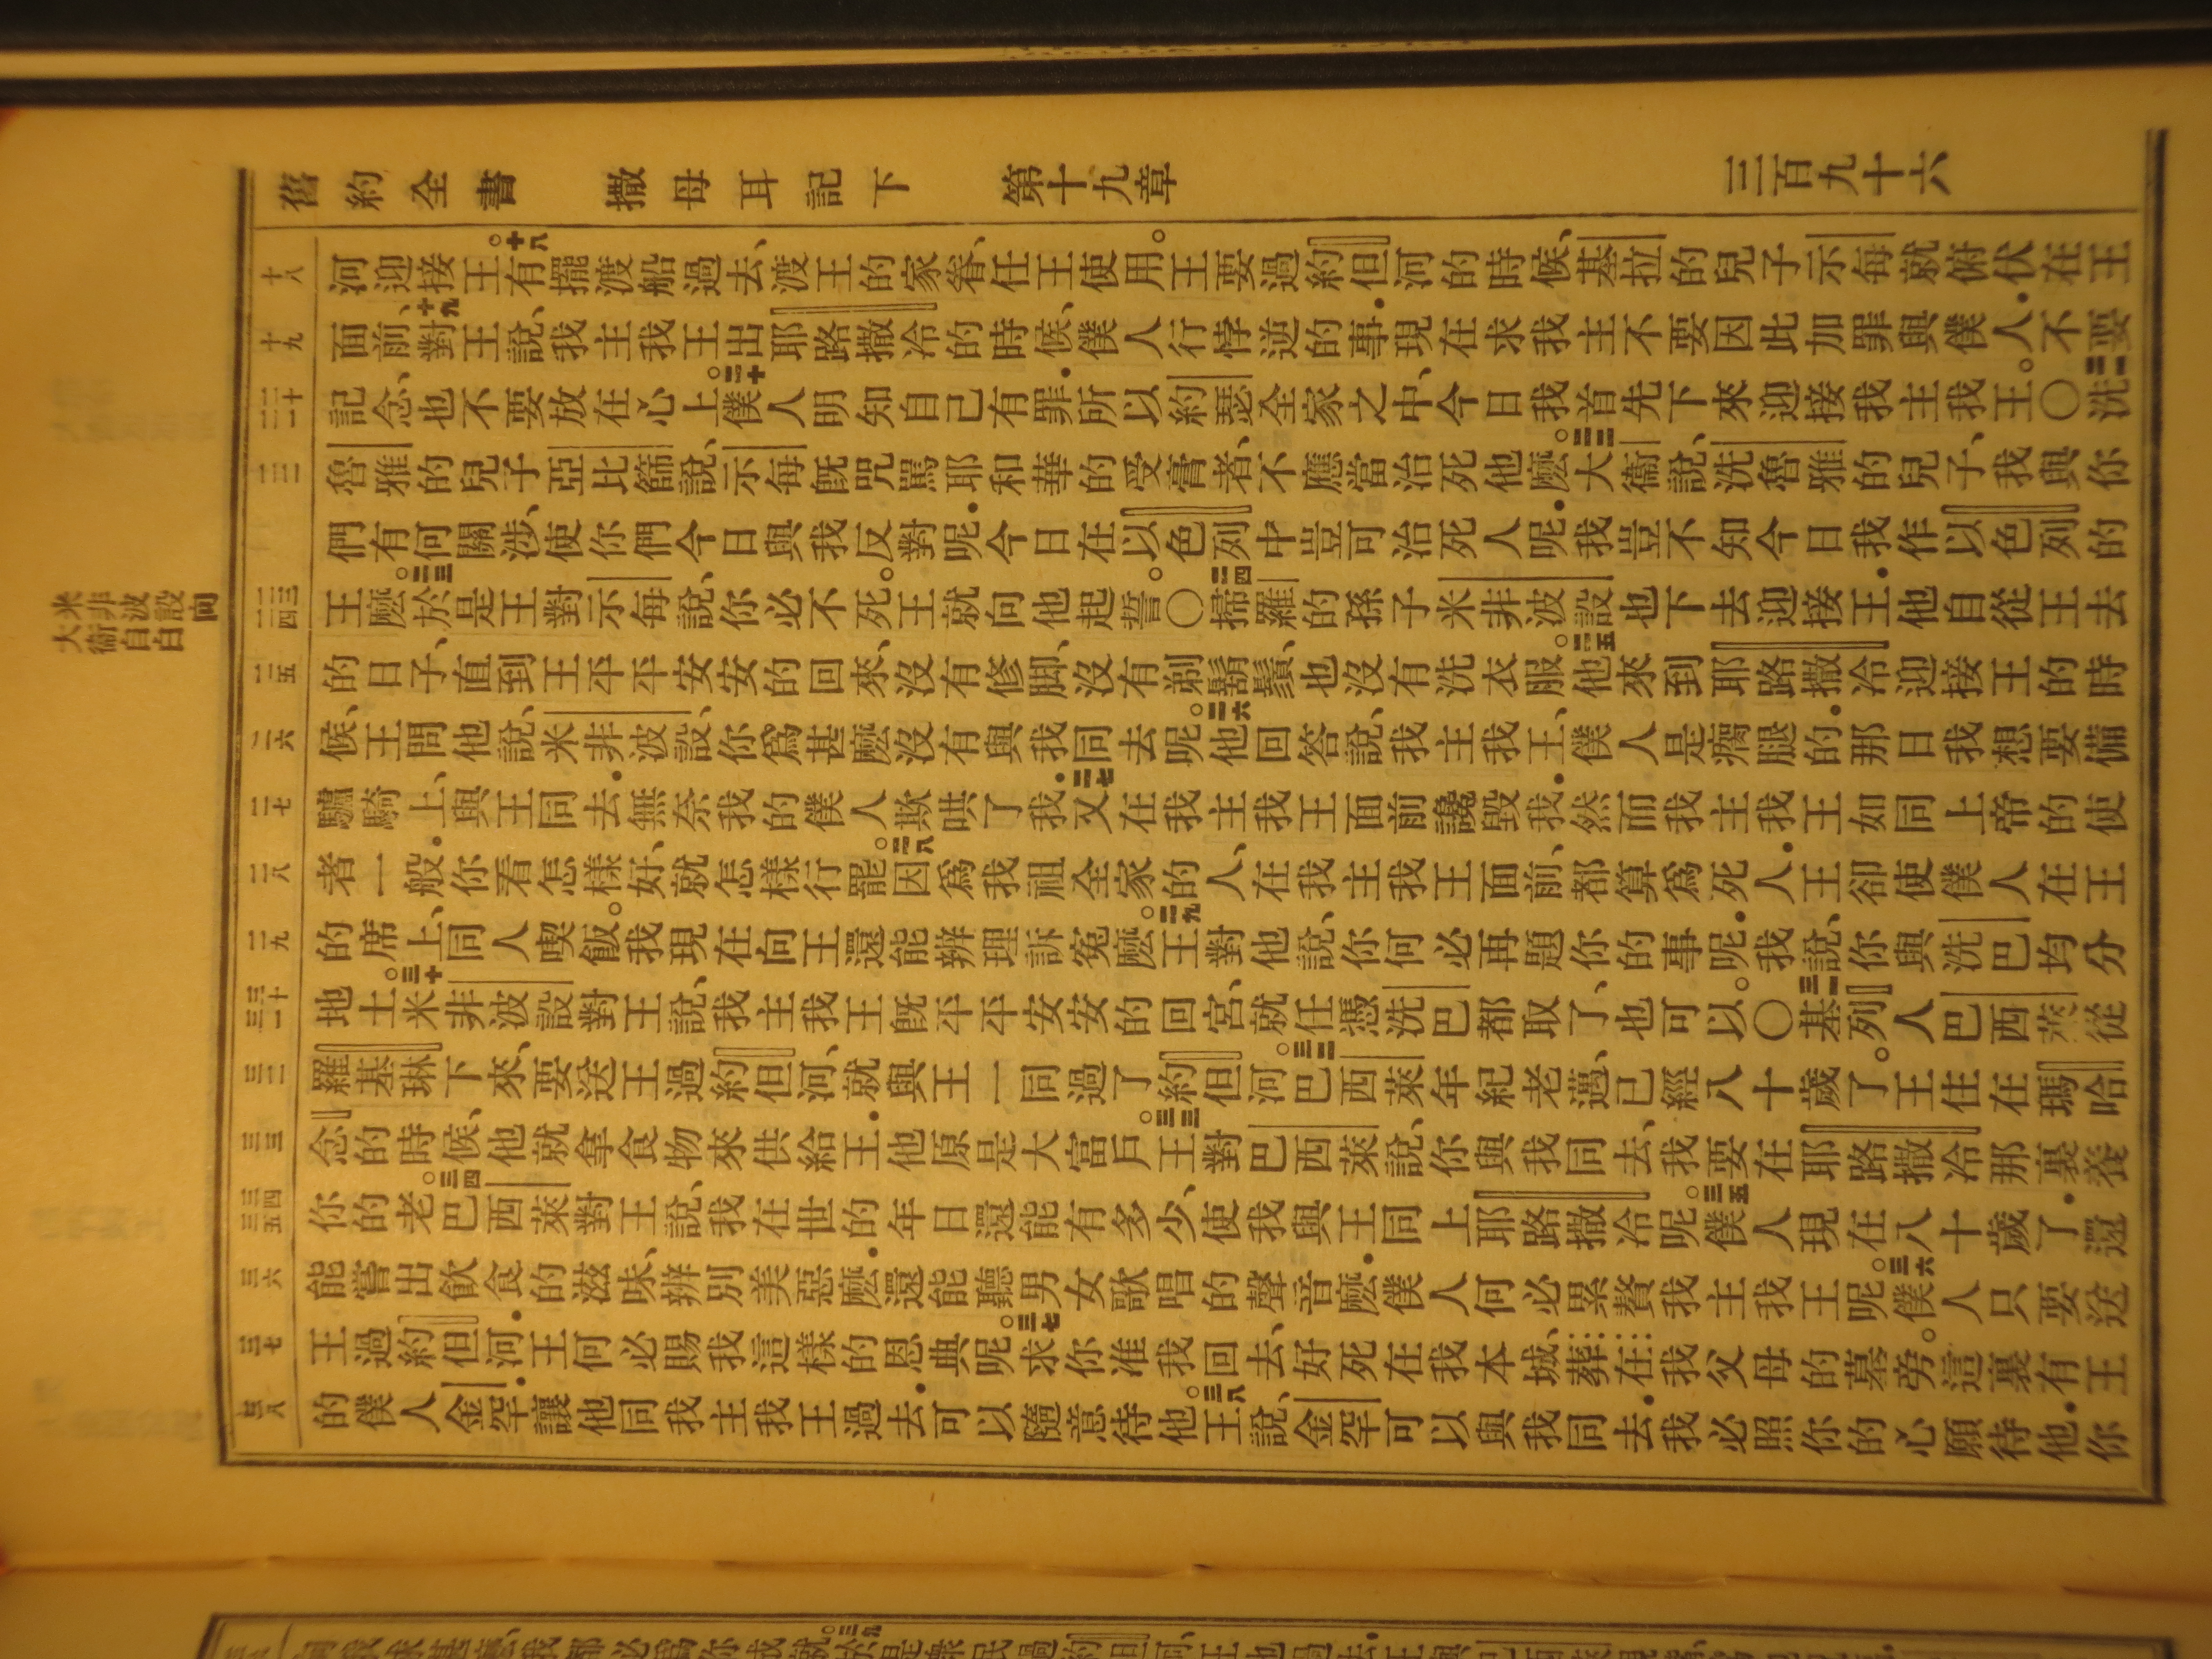 舊約全書 撒母耳記下 第十九章 三百九十六
米非波設向
大衛自白
十八
十九
二十 二一
二二
二三 二四
二五
二六
二七
二八
二九
三十 三一
三二
三三
三四 三五
三六
三七
三八
河迎接王。十八有擺渡船過去、渡王的家眷、任王使用。王要過約但河的時候、基拉的兒子示每就俯伏在王
面前、十九對王說、我主我王出耶路撒冷的時候、僕人行悖逆的事．現在求我主不要因此加罪與僕人．不要
記念、也不要放在心上。二十僕人明知自己有罪．所以約瑟全家之中、今日我首先下來迎接我主我王。〇二一洗
魯雅的兒子亞比篩說、示每旣咒罵耶和華的受膏者、不應當治死他麽。二二大衞說、洗魯雅的兒子、我與你
們有何關涉、使你們今日與我反對呢．今日在以色列中豈可治死人呢．我豈不知今日我作以色列的
王麽。二三於是王對示每說、你必不死。王就向他起誓。〇二四掃羅的孫子米非波設也下去迎接王．他自從王去
的日子、直到王平平安安的回來、沒有修脚、沒有剃鬍鬚、也沒有洗衣服。二五他來到耶路撒冷迎接王的時
候、王問他說、米非波設、你爲甚麽沒有與我同去呢。二六他回答說、我主我王、僕人是瘸腿的．那日我想要備
驢騎上、與王同去．無奈我的僕人欺哄了我．二七又在我主我王面前讒毀我．然而我主我王如同上帝的使
者一般．你看怎樣好、就怎樣行罷。二八因爲我祖全家的人、在我主我王面前、都算爲死人．王卻使僕人在王
的席上、同人喫飯。我現在向王還能辨理訴寃麽。二九王對他說、你何必再題你的事呢．我說、你與洗巴均分
地土。三十米非波設對王說、我主我王旣平平安安的回宮、就任憑洗巴都取了、也可以。〇三一基列人巴西萊從
羅基琳下來、要送王過約但河、就與王一同過了約但河。三二巴西萊年紀老邁、已經八十歲了。王住在瑪哈
念的時候、他就拿食物來供給王．他原是大富戶。三三王對巴西萊說、你與我同去、我要在耶路撒冷那裏養
你的老。三四巴西萊對王說、我在世的年日還能有多少、使我與王同上耶路撒冷呢。三五僕人現在八十歲了．還
能嘗出飲食的滋味、辨別美惡麽．還能聽男女歌唱的聲音麽．僕人何必累贅我主我王呢。三六僕人只要送
王過約但河．王何必賜我這樣的恩典呢。三七求你准我回去、好死在我本城、葬在我父母的墓旁。這裏有王
的僕人金罕．讓他同我主我王過去．可以隨意待他。三八王說、金罕可以與我同去．我必照你的心願待他．你